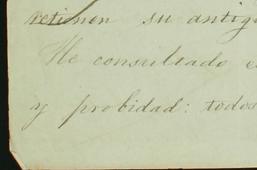 retienen su antig
He consultado e
y probidad: todos